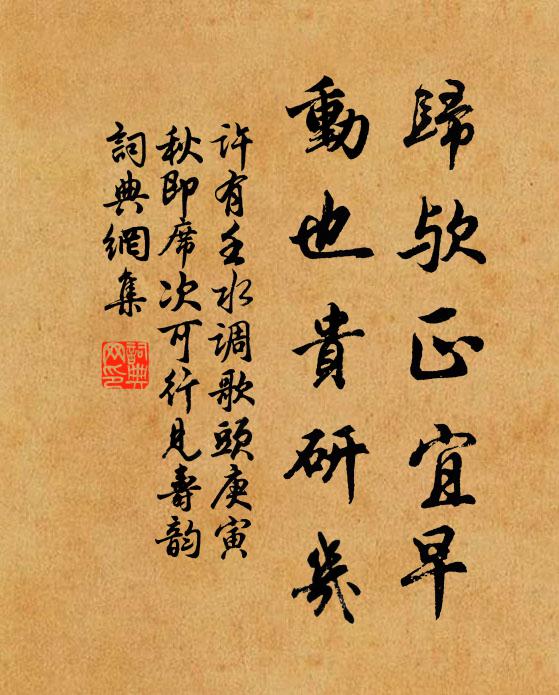 歸欤正宜早
動也貴研幾
許有壬水调歌頭庚寅
秋即席次可行見壽韵
詞典網集
詞典
网印